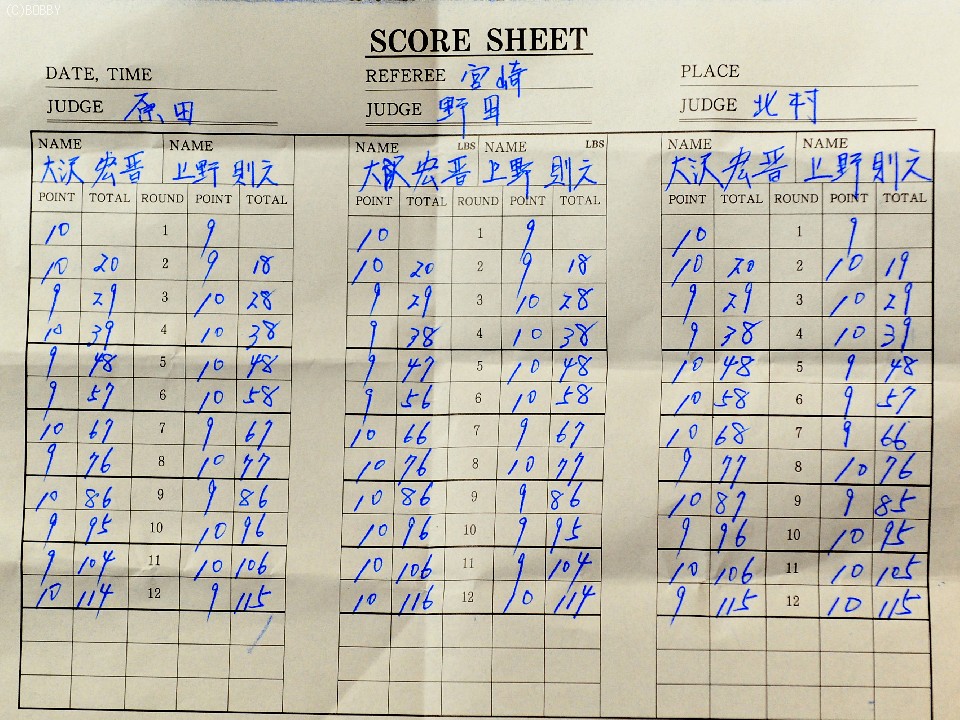 (C)BOBBY
SCORE SHEET
DATE, TIME REFEREE 宮崎 PLACE
JUDGE 原田 JUDGE 野田 JUDGE 北村
NAME NAME NAME LBS NAME LBS NAME NAME
大沢 宏晋 上野 則之 大沢 宏晋 上野 則之 大沢 宏晋 上野 則之
POINT TOTAL ROUND POINT TOTAL POINT TOTAL ROUND POINT TOTAL POINT TOTAL ROUND POINT TOTAL
10 1 9 10 1 9 10 1 9
10 20 2 9 18 10 20 2 9 18 10 20 2 10 19
9 29 3 10 28 9 29 3 10 28 9 29 3 10 29
10 39 4 10 38 9 38 4 10 38 9 38 4 10 39
9 48 5 10 48 9 47 5 10 48 10 48 5 9 48
9 57 6 10 58 9 56 6 10 58 10 58 6 9 57
10 67 7 9 67 10 66 7 9 67 10 68 7 9 66
9 76 8 10 77 10 76 8 10 77 9 77 8 10 76
10 86 9 9 86 10 86 9 9 86 10 87 9 9 85
9 95 10 10 96 10 96 10 9 95 9 96 10 10 95
9 104 11 10 106 10 106 11 9 104 10 106 11 10 105
10 114 12 9 115 10 116 12 10 114 9 115 12 10 115